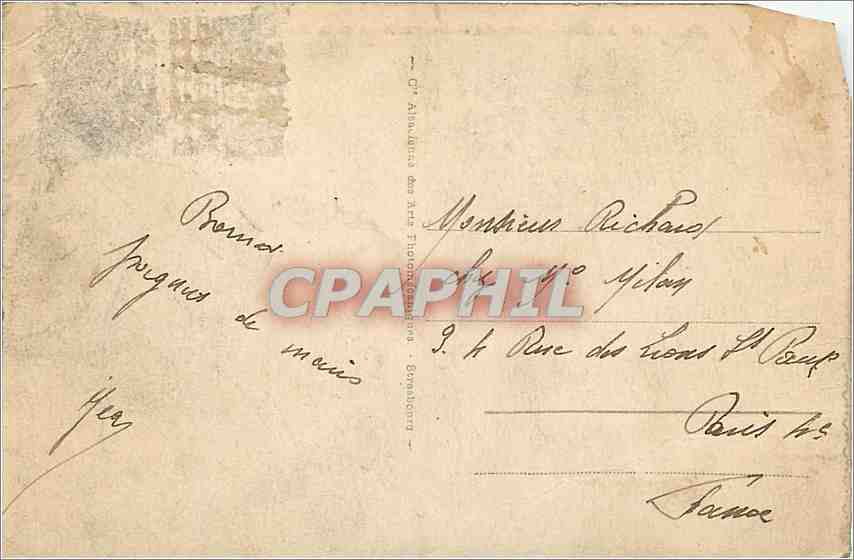 Cie Alsacienne des Arts Photomécaniques - Strasbourg
poignées
de
mains
Jean
CPAPHIL
Monsieur Richard
chez Mo Milan
Rue des Lions St Paul
Paris 4e
France